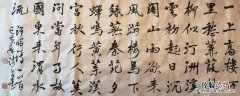 一上高樓萬
里愁蒹葭楊
柳似汀洲溪
雲初起日沉
閣山雨欲來
風滿樓鳥下
綠蕪秦苑夕
蟬鳴黃葉漢
宮秋行人莫
問當年事故
國東來渭水
流